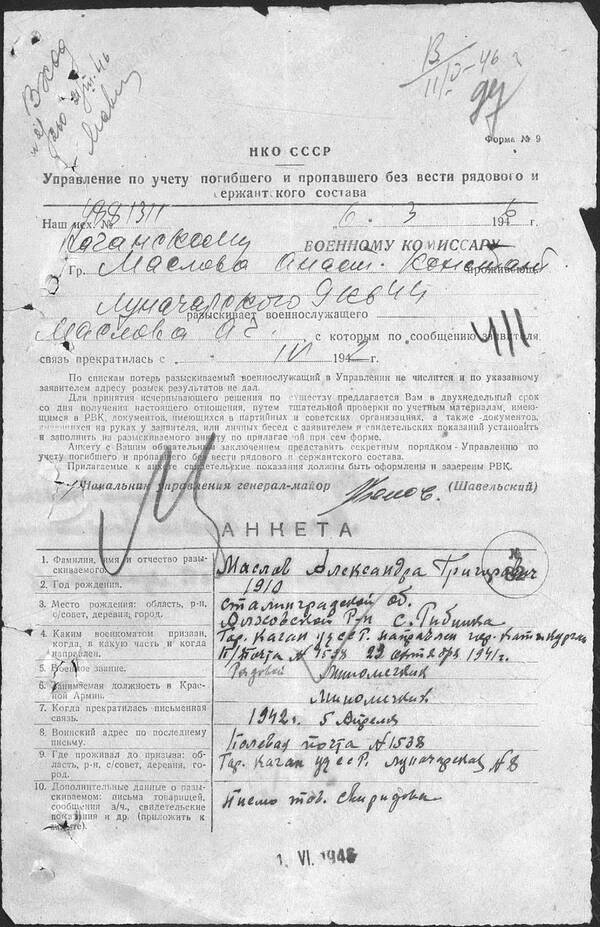 Вход
В/11/V-46 г
Форма № 9
НКО СССР
Управление по учету погибшего и пропавшего без вести рядового и
сержантского состава
Наш исх. № 981311 6. 3 1946 г.
Каганскому ВОЕННОМУ КОМИССАРУ
Гр. Маслова Анаст. Констант проживающ
Луначарского
разыскивает военнослужащего
Маслова с которым по сообщению заявителя
связь прекратилась с IV 1942 г.
По спискам потерь разыскиваемый военнослужащий в Управлении не числится и по указанному
заявителем адресу розыск результатов не дал.
Для принятия исчерпывающего решения по существу предлагается Вам в двухнедельный срок
со дня получения настоящего отношения, путем тщательной проверки по учетным материалам, имею-
щимся в РВК, документов, имеющихся в партийных и советских организациях, а также документов,
имеющихся на руках у заявителя, или личных бесед с заявителем и свидетельских показаний установить
и заполнить на разыскиваемого анкету по прилагаемой при сем форме.
Анкету с Вашим обязательным заключением представить секретным порядком Управлению по
учету погибшего и пропавшего без вести рядового и сержантского состава.
Прилагаемые к анкете свидетельские показания должны быть оформлены и заверены РВК.
Начальник управления генерал-майор (Шавельский)
АНКЕТА
1. Фамилия, имя и отчество разы-
скиваемого. Маслов Александра Григорьевич
2. Год рождения. 1910
3. Место рождения: область, р-н,
с/совет, деревня, город. Сталинградской об.
С. Рибинка
4. Каким военкоматом призван,
когда, в какую часть и когда
направлен. Гор. Каган УзССР. направлен гор. Катта-Курган
П/Почта № 1538 22 октября 1941 г.
5. Военное звание. Рядовой Минометчик
6. Занимаемая должность в Крас-
ной Армии. Минометчик
7. Когда прекратилась письменная
связь. 1942 г. 5 Апреля
8. Воинский адрес по последнему
письму. Полевая почта № 1538
9. Где проживал до призыва: об-
ласть, р-н, с/совет, деревня, го-
род. Гор. Каган УзССР. Луначарская № 8
10. Дополнительные данные о разы-
скиваемом: письма товарищей,
сообщения в/ч., свидетельские
показания и др. (приложить к
анкете). Писмо тов. Свиридова
1. VI. 1946